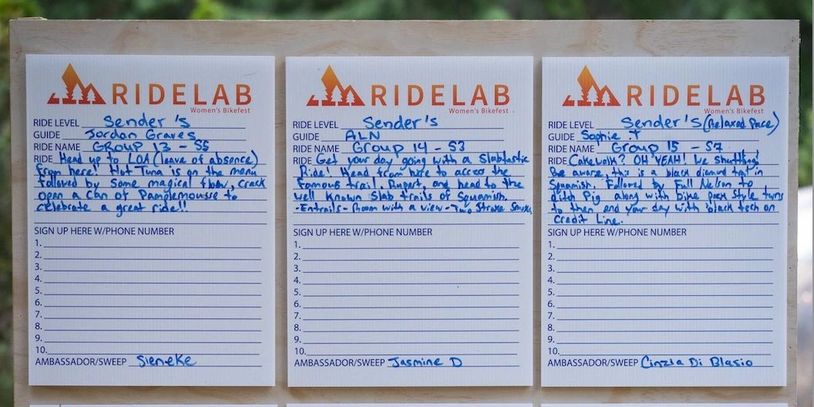 RIDELAB
Women's Bikefest
RIDE LEVEL Sender's
GUIDE Jordan Graves
RIDE NAME GROUP 13 - S5
RIDE Head up to LOA (leave of absence)
from here! Hot Tuna is on the menu
followed by some magical flow, crack
open a can of Pamplemousse to
celebrate a great ride!!
SIGN UP HERE W/PHONE NUMBER
1.
2.
3.
4.
5.
6.
7.
8.
9.
10.
AMBASSADOR/SWEEP Sieneke
RIDELAB
Women's Bikefest
RIDE LEVEL Sender's
GUIDE ALN
RIDE NAME Group 14 - S3
RIDE Get your day going with a Slabtastic
Ride! Head from here to access the
famous trail, Rupert, and head to the
well known Slab trails of Squamish.
-Entrails - Room with a view - Two Stroke Smoke
SIGN UP HERE W/PHONE NUMBER
1.
2.
3.
4.
5.
6.
7.
8.
9.
10.
AMBASSADOR/SWEEP Jasmine D
RIDELAB
Women's Bikefest
RIDE LEVEL Sender's (Relaxed Pace)
GUIDE Sophie T
RIDE NAME Group 15 - S7
RIDE Cakewalk? OH YEAH! We shuttling!
Be aware, this is a black diamond trail in
Squamish. Followed by Full Nelson to
ditch Pig along with bike park style turns
to then end your day with black tech on
Credit Line.
SIGN UP HERE W/PHONE NUMBER
1.
2.
3.
4.
5.
6.
7.
8.
9.
10.
AMBASSADOR/SWEEP Cinzia Di Blasio